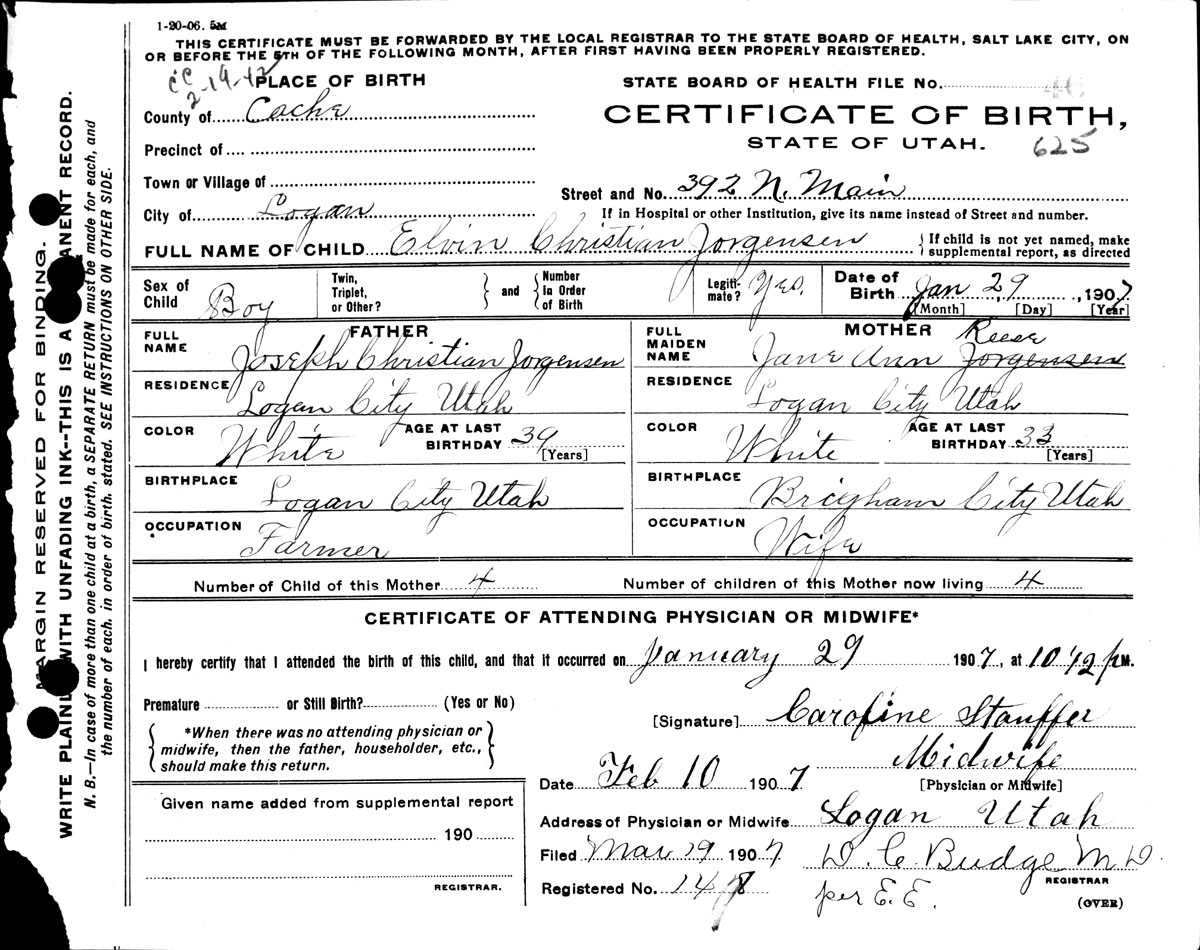 1-20-06. 5M
THIS CERTIFICATE MUST BE FORWARDED BY THE LOCAL REGISTRAR TO THE STATE BOARD OF HEALTH, SALT LAKE CITY, ON
OR BEFORE THE 5TH OF THE FOLLOWING MONTH, AFTER FIRST HAVING BEEN PROPERLY REGISTERED.
CC
2-19-42
PLACE OF BIRTH
STATE BOARD OF HEALTH FILE No.
County of Cache
CERTIFICATE OF BIRTH,
STATE OF UTAH.
625
Precinct of
Town or Village of
Street and No. 392 N. Main
City of Logan
If in Hospital or other Institution, give its name instead of Street and number.
FULL NAME OF CHILD Elvin Christian Jorgensen
If child is not yet named, make
supplemental report, as directed
Sex of Child Boy
Twin, Triplet, or Other?
and
Number In Order of Birth
Legiti-mate? Yes.
Date of Birth Jan 29, 1907
[Month] [Day] [Year]
FATHER
FULL NAME Joseph Christian Jorgensen
RESIDENCE Logan City Utah
COLOR White
AGE AT LAST BIRTHDAY 39
[Years]
BIRTHPLACE Logan City Utah
OCCUPATION Farmer
MOTHER
FULL MAIDEN NAME Jane Ann Jorgensen Reese
RESIDENCE Logan City Utah
COLOR White
AGE AT LAST BIRTHDAY 33
[Years]
BIRTHPLACE Brigham City Utah
OCCUPATION Wife
Number of Child of this Mother 4
Number of children of this Mother now living 4
CERTIFICATE OF ATTENDING PHYSICIAN OR MIDWIFE*
I hereby certify that I attended the birth of this child, and that it occurred on January 29 1907, at 10 1/2 p M.
Premature or Still Birth? (Yes or No)
*When there was no attending physician or
midwife, then the father, householder, etc.,
should make this return.
[Signature] Caroline Stauffer
Midwife
[Physician or Midwife]
Date Feb 10 1907
Address of Physician or Midwife Logan Utah
Given name added from supplemental report
190
REGISTRAR.
Filed Mar 19 1907
W. C. Budge M D.
REGISTRAR
Registered No. 147
per E.E.
(OVER)
MARGIN RESERVED FOR BINDING.
WRITE PLAINLY WITH UNFADING INK--THIS IS A PERMANENT RECORD.
N. B.—In case of more than one child at a birth, a SEPARATE RETURN must be made for each, and
the number of each, in order of birth, stated. SEE INSTRUCTIONS ON OTHER SIDE.